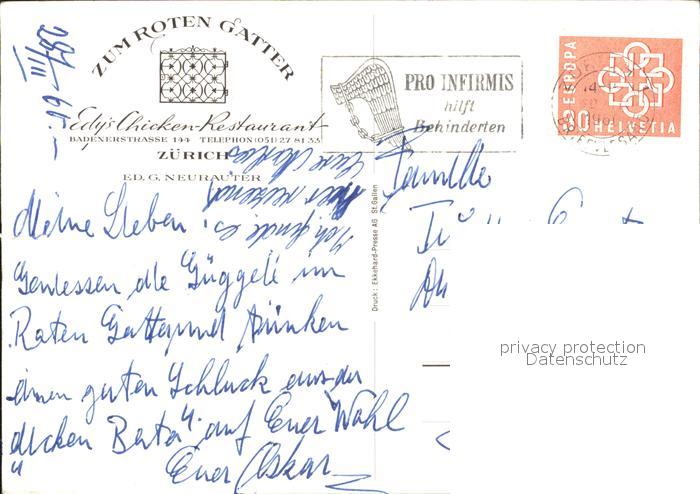 28/III 61. –
ZUM ROTEN GATTER
Edy's Chicken-Restaurant
BADENERSTRASSE 144 TELEPHON (051) 27 81 33
ZÜRICH
ED. G. NEURAUTER
PRO INFIRMIS
hilft
Behinderten
EUROPA
30 HELVETIA
Meine Lieben!
Geniessen die Güggeli im
Roten Gatter und trinken
einen guten Schluck aus der
„dicken Berta" auf Euer Wohl
Euer Oskar
Ich finde es
Familie
Druck: Ekkehard-Presse AG St. Gallen
privacy protection
Datenschutz